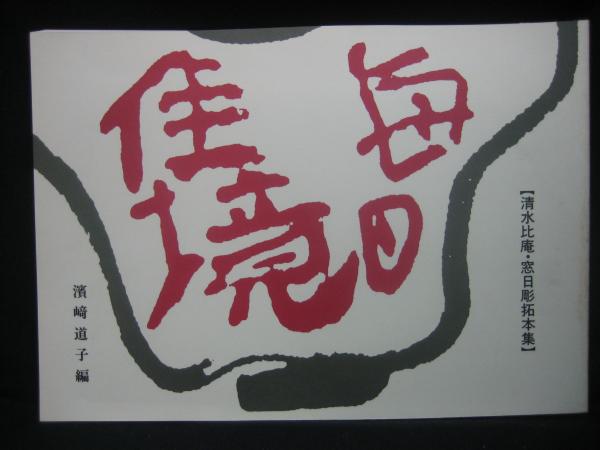 毎日
佳境
【清水比庵・窓日彫拓本集】
濱﨑道子編